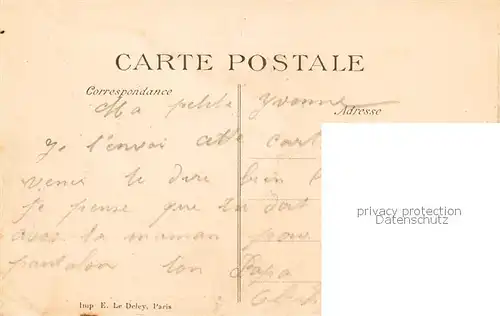 CARTE POSTALE
Correspondance
Adresse
Ma petite Yvonne
Je t'envoi cette cart
venir te dire bien
je pense que tu doit
avec ta maman pour
pantalon ton Papa
privacy protection
Datenschutz
Imp E. Le Deley, Paris